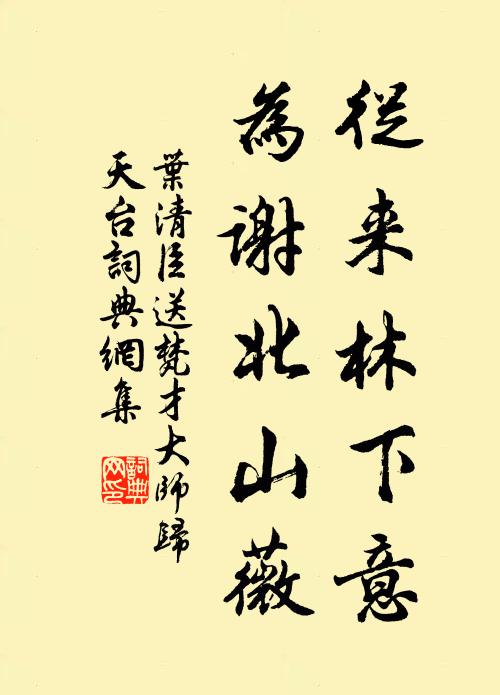 從来林下意
為謝北山薇
葉清臣送梵才大師歸
天台詞典網集
詞典
网印